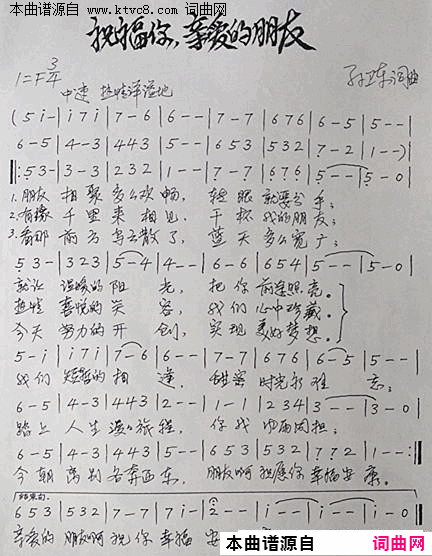 本曲谱源自 www.ktvc8.com 词曲网
祝福你,亲爱的朋友
1=F 3/4
中速 热情洋溢地
词曲
(5 i - | i 7 i | 7 - 6 | 6 - - | 7 - 7 | 6 7 6 | 6 - 5 | 5 - - |
6 - 5 | 4 - 3 | 4 4 3 | 5 - - | 6 5 3 | 5 3 2 | 7 - 2 | 1 - -) |
‖: 5 3 - | 3 - 3 | 2 3 2 | 1 - - | 7 - 7 | 6 7 6 | 5 - - | 5 - 0 |
1. 朋友 相聚多么欢畅, 转眼就要分手;
2. 有缘 千里来相见, 干杯我的朋友;
3. 看那 前方乌云散了, 蓝天多么宽广;
5 3 - | 3 2 3 | 5 - 4 | 4 - - | 6 - 6 | 6 5 4 | 5 - - | 5 - 0 |
就让 温暖的阳光, 把你前途照亮。
热情 喜悦的笑容, 我们心中珍藏。
今天 努力的开创, 实现美好梦想。
5 - i | i 7 i | 7 - 6 | 6 - - | 7 - 7 | 6 7 6 | 6 - 5 | 5 - - |
我们 短暂的相逢, 甜蜜时光永难忘;
6 - 5 | 4 - 3 | 4 4 3 | 2 - - | 1 - 1 | 2 3 4 | 3 - - | 3 - 0 |
踏上 人生漫漫旅程, 你我
6 - 5 | 4 - 3 | 4 4 3 | 5 - - | 6 5 3 | 5 3 2 | 7 7 2 | 1 - - :‖
今朝离别各奔西东, 朋友啊祝愿你幸福安康。
结束句
6 5 3 | 5 3 2 | 7 - 7 | 7 i - | 2 - - | i - - | i - - | i - 0 ‖
亲爱的朋友啊祝你幸福安
本曲谱源自 词曲网